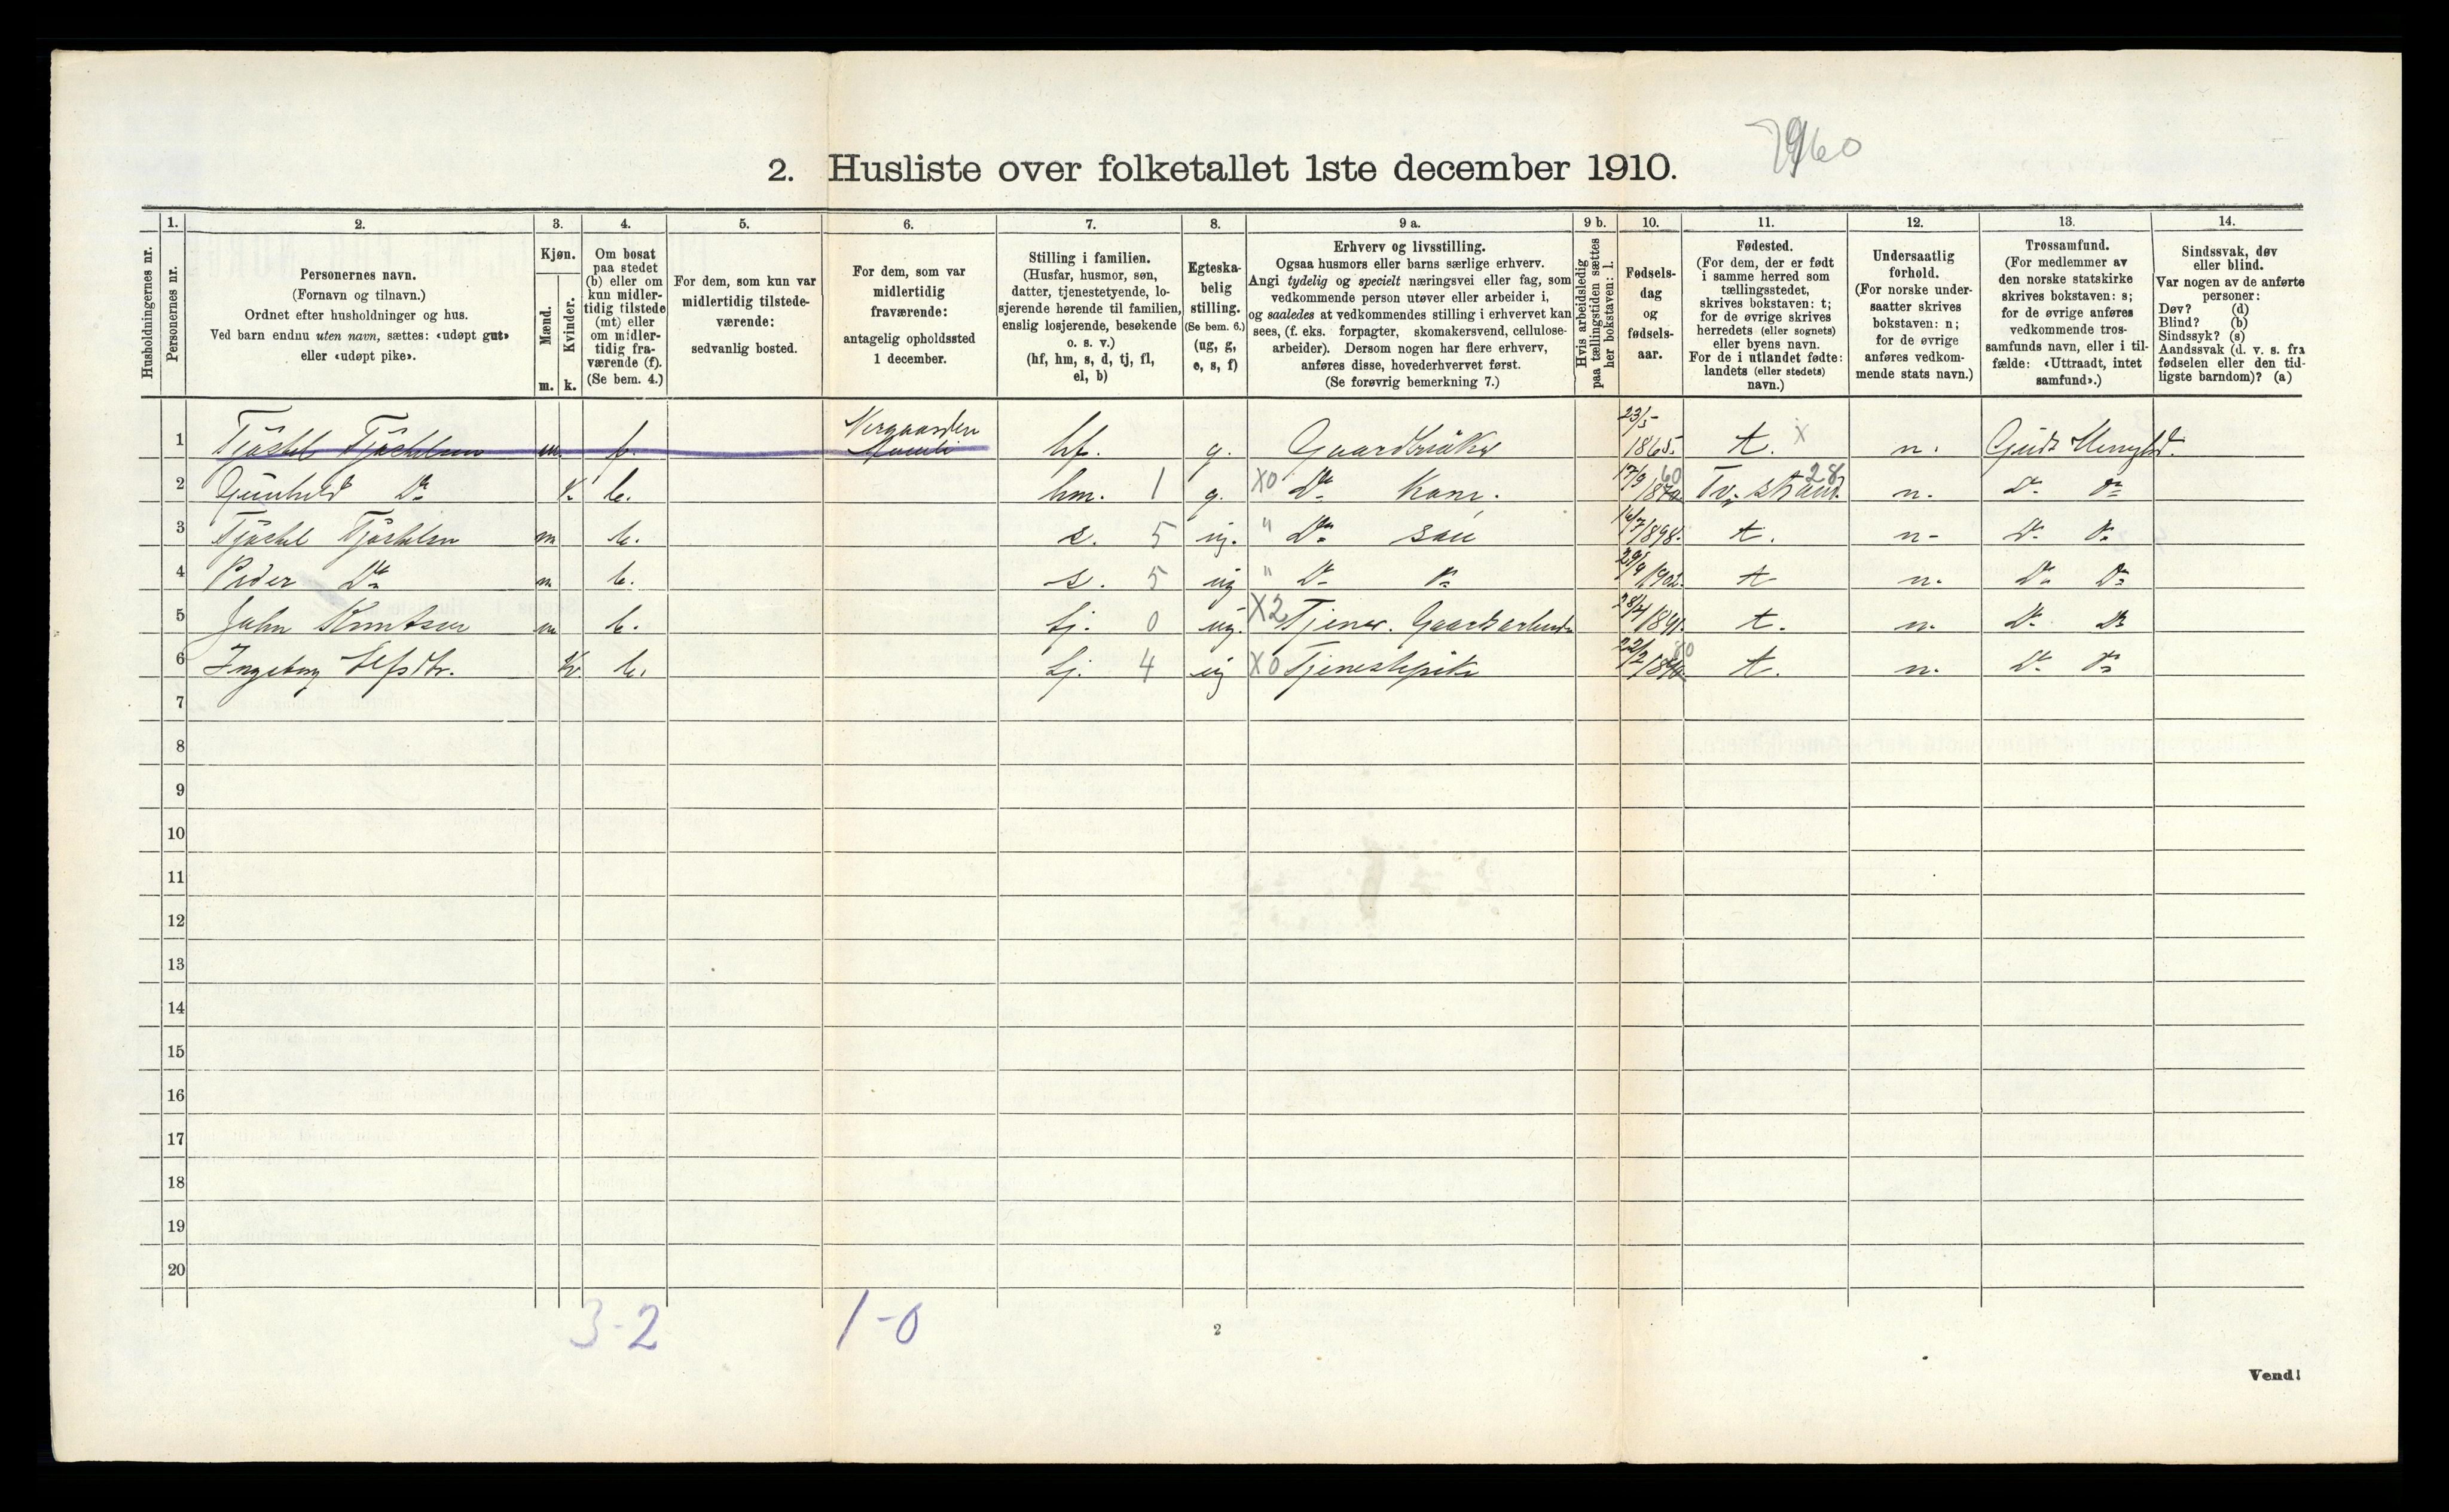 7960
2. Husliste over folketallet 1ste december 1910.
1. 2. 3. 4. 5. 6. 7. 8. 9 a. 9 b. 10. 11. 12. 13. 14.
Husholdningernes nr.
Personernes nr.
Personernes navn.
(Fornavn og tilnavn.)
Ordnet efter husholdninger og hus.
Ved barn endnu uten navn, sættes: «udøpt gut»
eller «udøpt pike».
Kjøn.
Mænd.
Kvinder.
m. k.
Om bosat
paa stedet
(b) eller om
kun midler-
tidig tilstede
(mt) eller
om midler-
tidig fra-
værende (f).
(Se bem. 4.)
For dem, som kun var
midlertidig tilstede-
værende:
sedvanlig bosted.
For dem, som var
midlertidig
fraværende:
antagelig opholdssted
1 december.
Stilling i familien.
(Husfar, husmor, søn,
datter, tjenestetyende, lo-
sjerende hørende til familien,
enslig losjerende, besøkende
o. s. v.)
(hf, hm, s, d, tj, fl,
el, b)
Egteska-
belig
stilling.
(Se bem. 6.)
(ug, g,
e, s, f)
Erhverv og livsstilling.
Ogsaa husmors eller barns særlige erhverv.
Angi tydelig og specielt næringsvei eller fag, som
vedkommende person utøver eller arbeider i,
og saaledes at vedkommendes stilling i erhvervet kan
sees, (f. eks. forpagter, skomakersvend, cellulose-
arbeider). Dersom nogen har flere erhverv,
anføres disse, hovederhvervet først.
(Se forøvrig bemerkning 7.)
Hvis arbeidsledig
paa tællingstiden sættes
her bokstaven: l.
Fødsels-
dag
og
fødsels-
aar.
Fødested.
(For dem, der er født
i samme herred som
tællingsstedet,
skrives bokstaven: t;
for de øvrige skrives
herredets (eller sognets)
eller byens navn.
For de i utlandet fødte:
landets (eller stedets)
navn.)
Undersaatlig
forhold.
(For norske under-
saatter skrives
bokstaven: n;
for de øvrige
anføres vedkom-
mende stats navn.)
Trossamfund.
(For medlemmer av
den norske statskirke
skrives bokstaven: s;
for de øvrige anføres
vedkommende tros-
samfunds navn, eller i til-
fælde: «Uttraadt, intet
samfund».)
Sindssvak, døv
eller blind.
Var nogen av de anførte
personer:
Døv? (d)
Blind? (b)
Sindssyk? (s)
Aandssvak (d. v. s. fra
fødselen eller den tid-
ligste barndom)? (a)
1 m. f. hf. g. Gaardbruker 23/5 1865. t. x n.
2 Gunhild Do k. b. hm. 1 g. X0 Do Kone. 17/9 60 Tv.strand. 28 n. Do Do
3 m b. s. 5 ug. " Do søn 1898. t. n- Do Do
4 Peder Do m b. s. 5 ug " Do Do 1902. t n. Do Do
5 John Knutsen m b. tj. 0 ug. X2 Tjener. 1891. t. n. Do Do
6 Ingeborg k. b. tj. 4 ug X0 Tjenestepike t. n. Do Do
7
8
9
10
11
12
13
14
15
16
17
18
19
20
3-2 1-0
2
Vend!